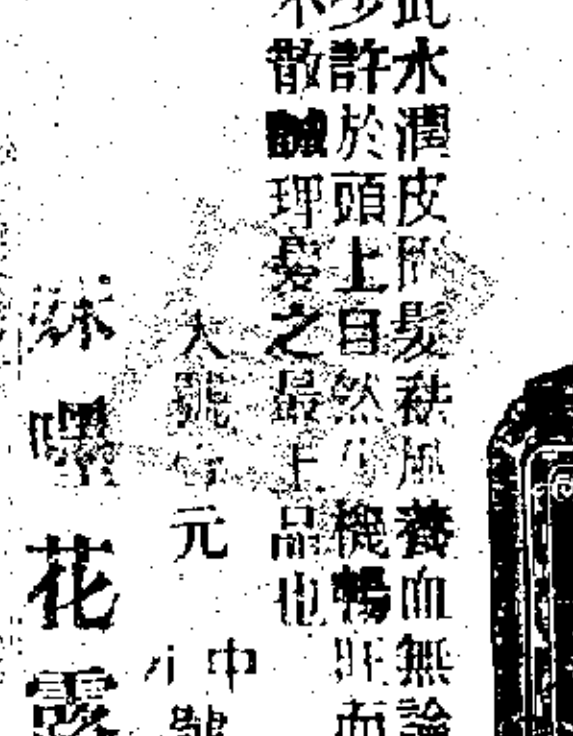 此水潤皮膚髮祛風養血無論
少許於頭上自然生機暢旺而
不散誠理髮之最上品也
中
大號每元
小號
花露